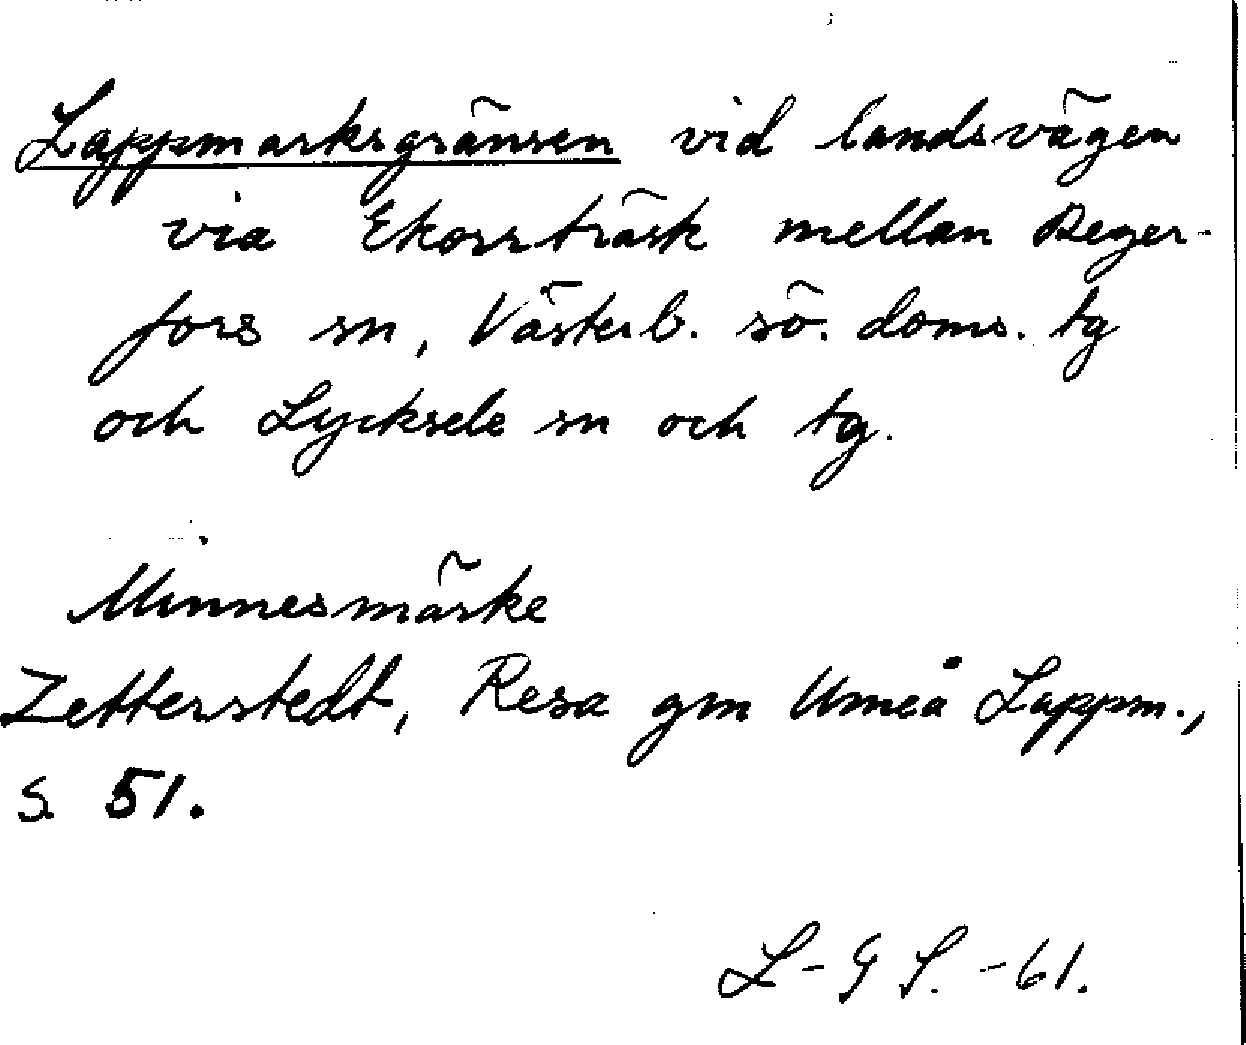 Lappmarksgränsen vid landsvägen
via Ekorrträsk mellan Deger-
fors sn, Västerb. sö. doms. tg
och Lycksele sn och tg.
Minnesmärke
Zetterstedt, Resa gm Umeå Lappm.,
s. 51.
L-G S. -61.